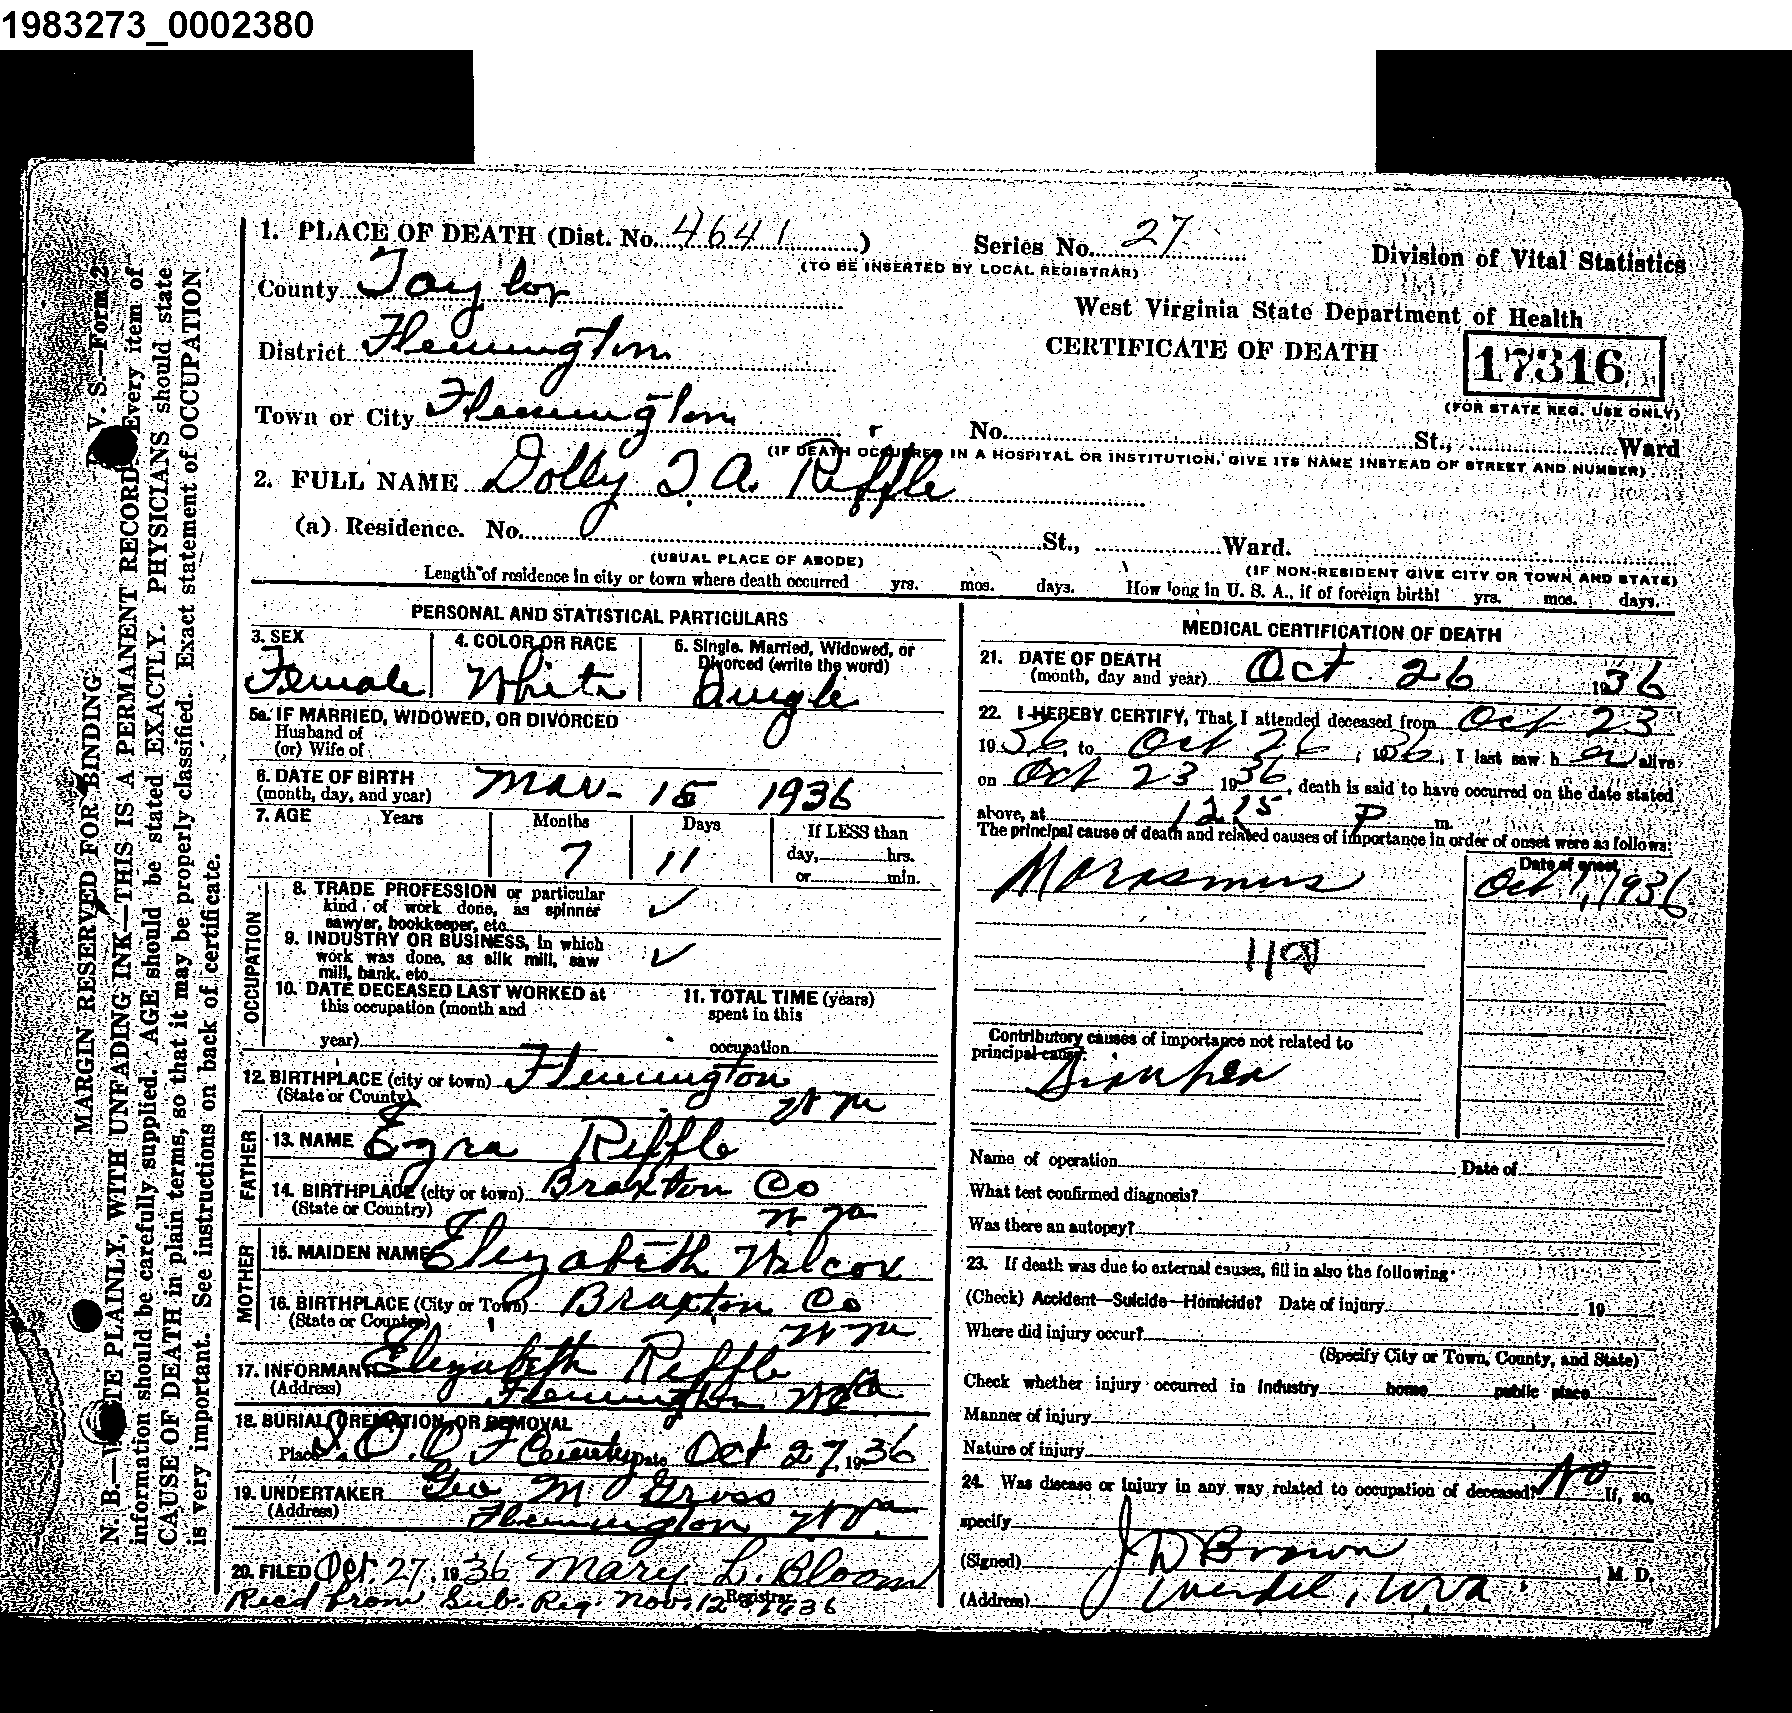 1983273_0002380
1. PLACE OF DEATH (Dist. No. 4641)
Series No. 27
(TO BE INSERTED BY LOCAL REGISTRAR)
Division of Vital Statistics
County Taylor
West Virginia State Department of Health
District Flemington
CERTIFICATE OF DEATH
17316
(FOR STATE REG. USE ONLY)
Town or City Flemington
No. St., Ward
(IF DEATH OCCURRED IN A HOSPITAL OR INSTITUTION, GIVE ITS NAME INSTEAD OF STREET AND NUMBER)
2. FULL NAME Dolly I. A. Riffle
(a) Residence. No. St., Ward.
(USUAL PLACE OF ABODE)
(IF NON-RESIDENT GIVE CITY OR TOWN AND STATE)
Length of residence in city or town where death occurred yrs. mos. days. How long in U. S. A., if of foreign birth! yrs. mos. days.
PERSONAL AND STATISTICAL PARTICULARS
3. SEX
Female
4. COLOR OR RACE
White
5. Single. Married, Widowed, or
Divorced (write the word)
Single
5a. IF MARRIED, WIDOWED, OR DIVORCED
Husband of
(or) Wife of
6. DATE OF BIRTH
(month, day, and year) Mar- 15 1936
7. AGE Years Months Days If LESS than
7 11 day, hrs.
or min.
OCCUPATION
8. TRADE PROFESSION or particular
kind of work done, as spinner
sawyer, bookkeeper, etc. ✓
9. INDUSTRY OR BUSINESS, in which
work was done, as silk mill, saw
mill, bank. etc ✓
10. DATE DECEASED LAST WORKED at
this occupation (month and
year)
11. TOTAL TIME (years)
spent in this
occupation
12. BIRTHPLACE (city or town) Flemington
(State or County) W Va
FATHER
13. NAME Ezra Riffle
14. BIRTHPLACE (city or town) Braxton Co
(State or Country) W Va
MOTHER
15. MAIDEN NAME Elizabeth Wilcox
16. BIRTHPLACE (City or Town) Braxton Co
(State or Country) W Va
17. INFORMANT Elizabeth Riffle
(Address) Flemington W Va
18. BURIAL, CREMATION, OR REMOVAL
Place I. O. O. F Cemetery Date Oct 27, 1936
19. UNDERTAKER Geo M Gross
(Address) Flemington W Va.
20. FILED Oct. 27, 1936 Mary L. Bloom
Registrar
Recd from Sub. Reg. Nov. 12 1936
MEDICAL CERTIFICATION OF DEATH
21. DATE OF DEATH
(month, day and year) Oct 26 1936
22. I HEREBY CERTIFY, That I attended deceased from Oct 23
1936, to Oct 26, 1936, I last saw her alive
on Oct 23 1936, death is said to have occurred on the date stated
above, at 1215 P m.
The principal cause of death and related causes of importance in order of onset were as follows:
Date of onset
Marasmus Oct 1, 1936
119
Contributory causes of importance not related to
principal cause:
Name of operation Date of
What test confirmed diagnosis?
Was there an autopsy?
23. If death was due to external causes, fill in also the following
(Check) Accident—Suicide—Homicide? Date of injury 19
Where did injury occur?
(Specify City or Town, County, and State)
Check whether injury occurred in industry home public place
Manner of injury
Nature of injury
24. Was disease or injury in any way related to occupation of deceased? No If, so,
specify
(Signed) J D Brown M. D.
(Address) Wendel, W. Va.
MARGIN RESERVED FOR BINDING
V. S.—Form 2
N. B.—WRITE PLAINLY, WITH UNFADING INK—THIS IS A PERMANENT RECORD. Every item of
information should be carefully supplied. AGE should be stated EXACTLY. PHYSICIANS should state
CAUSE OF DEATH in plain terms, so that it may be properly classified. Exact statement of OCCUPATION
is very important. See instructions on back of certificate.